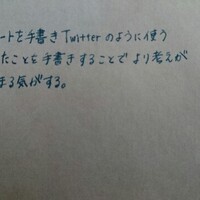 ートを手書きTwitterのように使う
たことを手書きすることでより考えが
まる気がする。